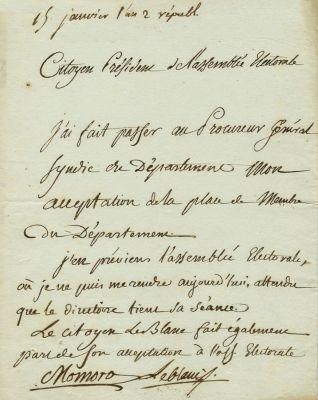 15 janvier l'an 2 républ.
Citoyen Président de l'assemblée Electorale
J'ai fait passer au Procureur Général
Syndic du Département Mon
acceptation de la place de Membre
du Département
j'en préviens l'assemblée Electorale,
où je ne puis me rendre aujourd'hui, attendu
que le directoire tient sa séance.
Le citoyen Le Blanc fait également
part de son acceptation à l'ass. Electorale
Momoro Leblanc